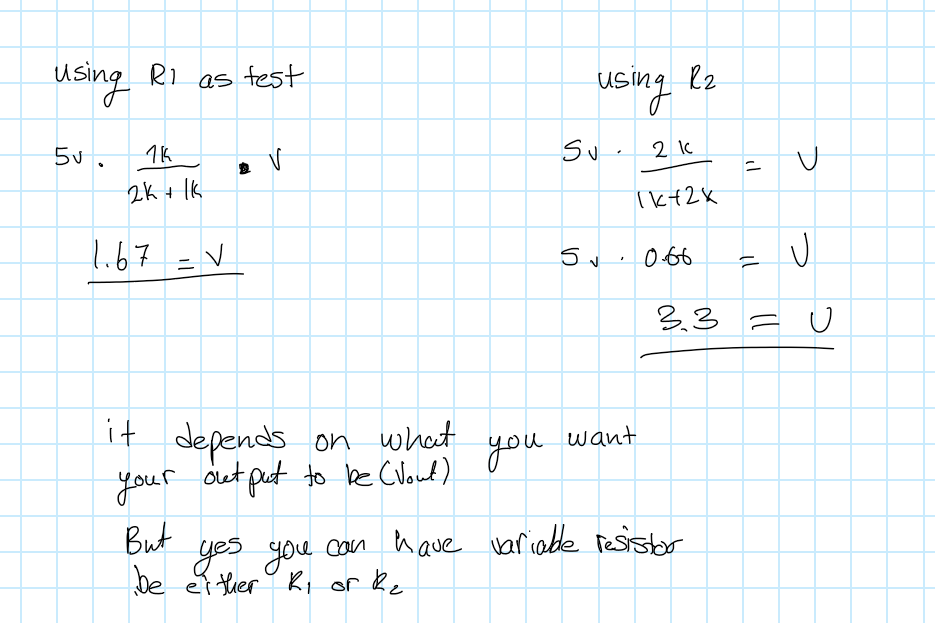 using R1 as test
5v . 1k / 2k + 1k = V
1.67 = V
using R2
5v . 2k / 1k+2k = V
5v . 0.66 = V
3.3 = V
it depends on what you want
your output to be (Vout)
But yes you can have variable resistor
be either R1 or R2